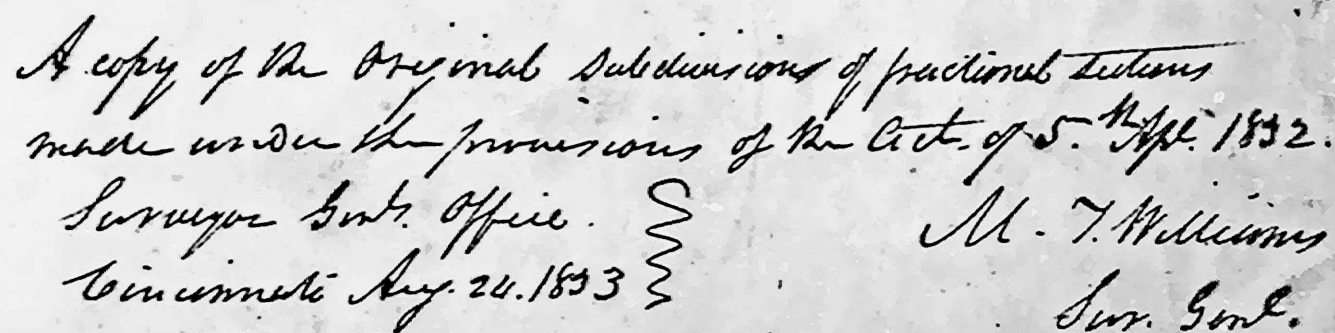 A copy of the Original Subdivisions of fractional Sections
made under the provisions of the Act. of 5.th Apl. 1832.
Surveyor Genls. Office.
Cincinnati Aug. 24. 1833
M. T. Williams
Sur. Genl.